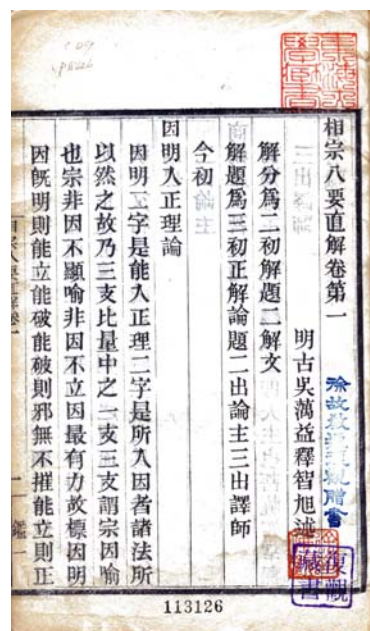 相宗八要直解卷第一
明古吳蕅益釋智旭述
解分爲二初解題二解文
解題爲三初正解論題二出論主三出譯師
今初
因明入正理論
因明二字是能入正理二字是所入因者諸法所
以然之故乃三支比量中之一支三支謂宗因喻
也宗非因不顯喻非因不立因最有力故標因明
因旣明則能立能破能破則邪無不摧能立則正
113126